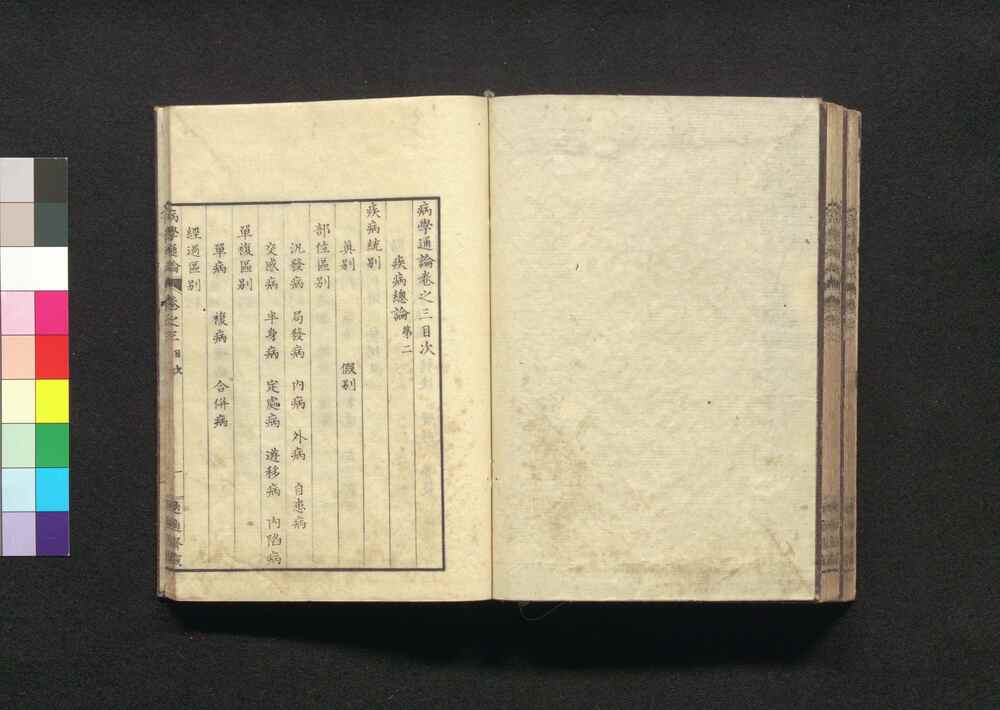 病學通論卷之三目次
疾病總論第二
疾病統别
眞别 假别
部位區别
汎發病 局發病 内病 外病 自患病
交感病 半身病 定處病 遊移病 内陷病
單複區别
單病 複病 合併病
經過區别
病學通論 卷之三 目次 一